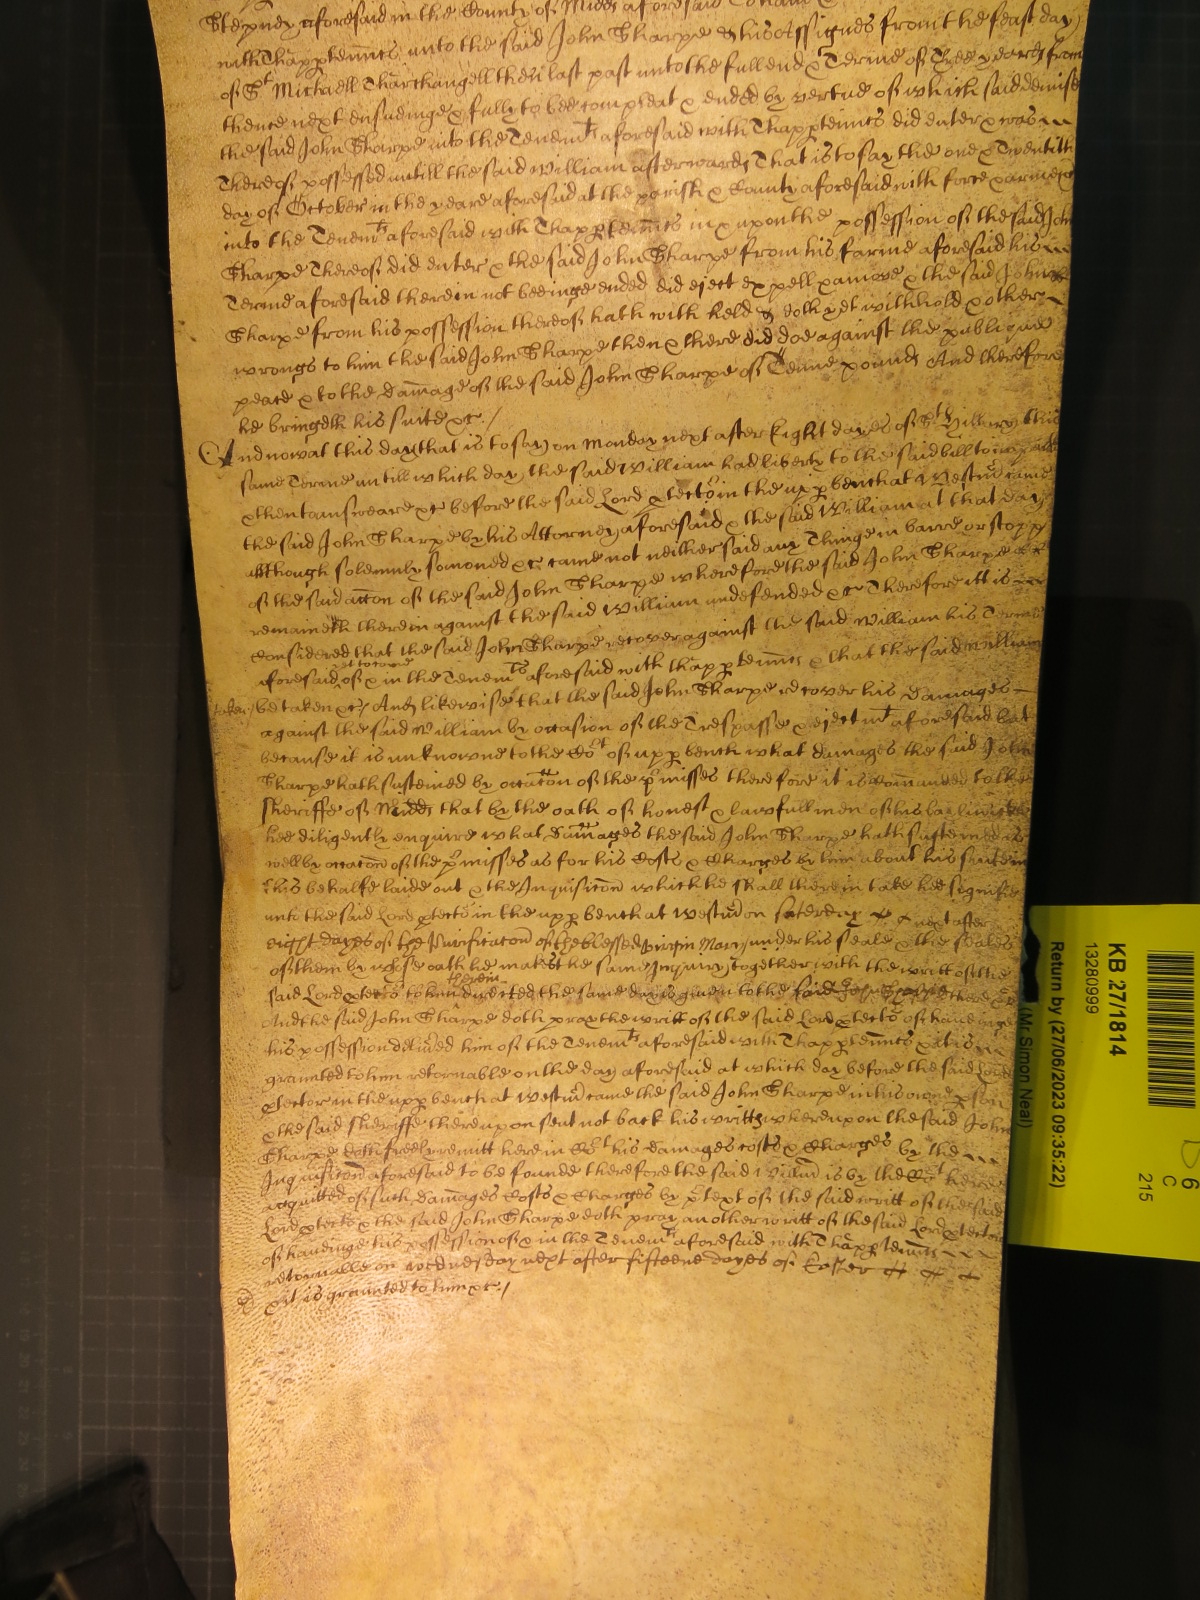 Stepney aforesaid in the County of Midds aforesaid
with Thapptennts unto the said John Sharpe & his Assignes from the feast day
of St Michaell Tharchangell then last past unto the full end & Terme of Three yeares from
thence next ensueinge & fully to bee compleat & ended by vertue of which said demise
the said John Sharpe into the Tenemt aforesaid with Thapptennts did enter & was
Thereof possessed untill the said William afterwards That is to say the one & Twentith
day of October in the yeare aforesaid at the parish & County aforesaid with force & armes &c
into the Tenemt aforesaid with Thapptennts in & upon the possession of the said John
Sharpe Thereof did enter & the said John Sharpe from his farme aforesaid his
Terme aforesaid therein not beeinge ended did eject expell & amove & the said John
Sharpe from his possession thereof hath with held & doth yet withhold & other
wrongs to him the said John Sharpe then & there did doe against the publique
peace & to the damage of the said John Sharpe of Tenne pounds And therefore
he bringeth his suite &c /
And now at this day that is to say on Monday next after Eight dayes of St Hillary this
same Terme untill which day the said William had liberty to the said bill to
& then to answeare &c before the said Lord Ptector in the upp bench at Westm came
the said John Sharpe by his Attorney aforesaid & the said William at that day
although solemnly somoned &c came not neither said any Thinge in barre or stopp
of the said accon of the said John Sharpe wherefore the said John Sharpe
remaineth therein against the said William undefended &c Therefore itt is
Considered that the said John Sharpe recover against the said William his Terme
aforesaid yet to come of & in the Tenemts aforesaid with thapptennts & that the said William
be taken &c / And likewise that the said John Sharpe recover his damages
against the said William by occasion of the Trespasse & ejectmt aforesaid but
because it is unknowne to the Cort of upp bench what damages the said John
Sharpe hath susteined by occacon of the pmisses therefore it is comanded to the
sheriffe of Midds that by the oath of honest & lawfull men of his bayliwicke
hee diligently enquire what damages the said John Sharpe hath susteined as
well by occacon of the pmisses as for his Costs & Charges by him about his suite in
this behalfe laide out & the Inquisicon which he shall therein take hee signifie
unto the said Lord Ptector in the upp bench at Westm on Saterday next after
eight dayes of the Purificacon of the blessed virgin Mary under his seale & the seales
of them by whose oath he makes the same Inquiry together with the writt of the
said Lord Ptector to him therein directed the same day is given to the said John Sharpe there &c
And the said John Sharpe doth pray the writt of the said Lord Ptector of haveinge
his possession delivred him of the Tenemt aforesaid with Thapptennts & it is
graunted to him retornable on the day aforesaid at which day before the said Lord
Ptector in the upp bench at Westm came the said John Sharpe in his owne pson
& the said sheriffe thereupon sent not back his writts whereupon the said John
Sharpe doth freely remitt here in Cort his damages costs & Charges by the
Inquisicon aforesaid to be founde therefore the said Willm is by the Cort here
acquitted of such damages Costs & Charges by ptext of the said writt of the said
Lord Ptector & the said John Sharpe doth pray another writt of the said Lord Ptector
of haveinge his possession of & in the Tenemt aforesaid with Thapptennts
retornable on Wednesday next after fifteene dayes of Easter
& it is graunted to him &c /
KB 27/1814
13280999
Return by (27/06/2023 09:35:22)
(Mr Simon Neal)
C
215